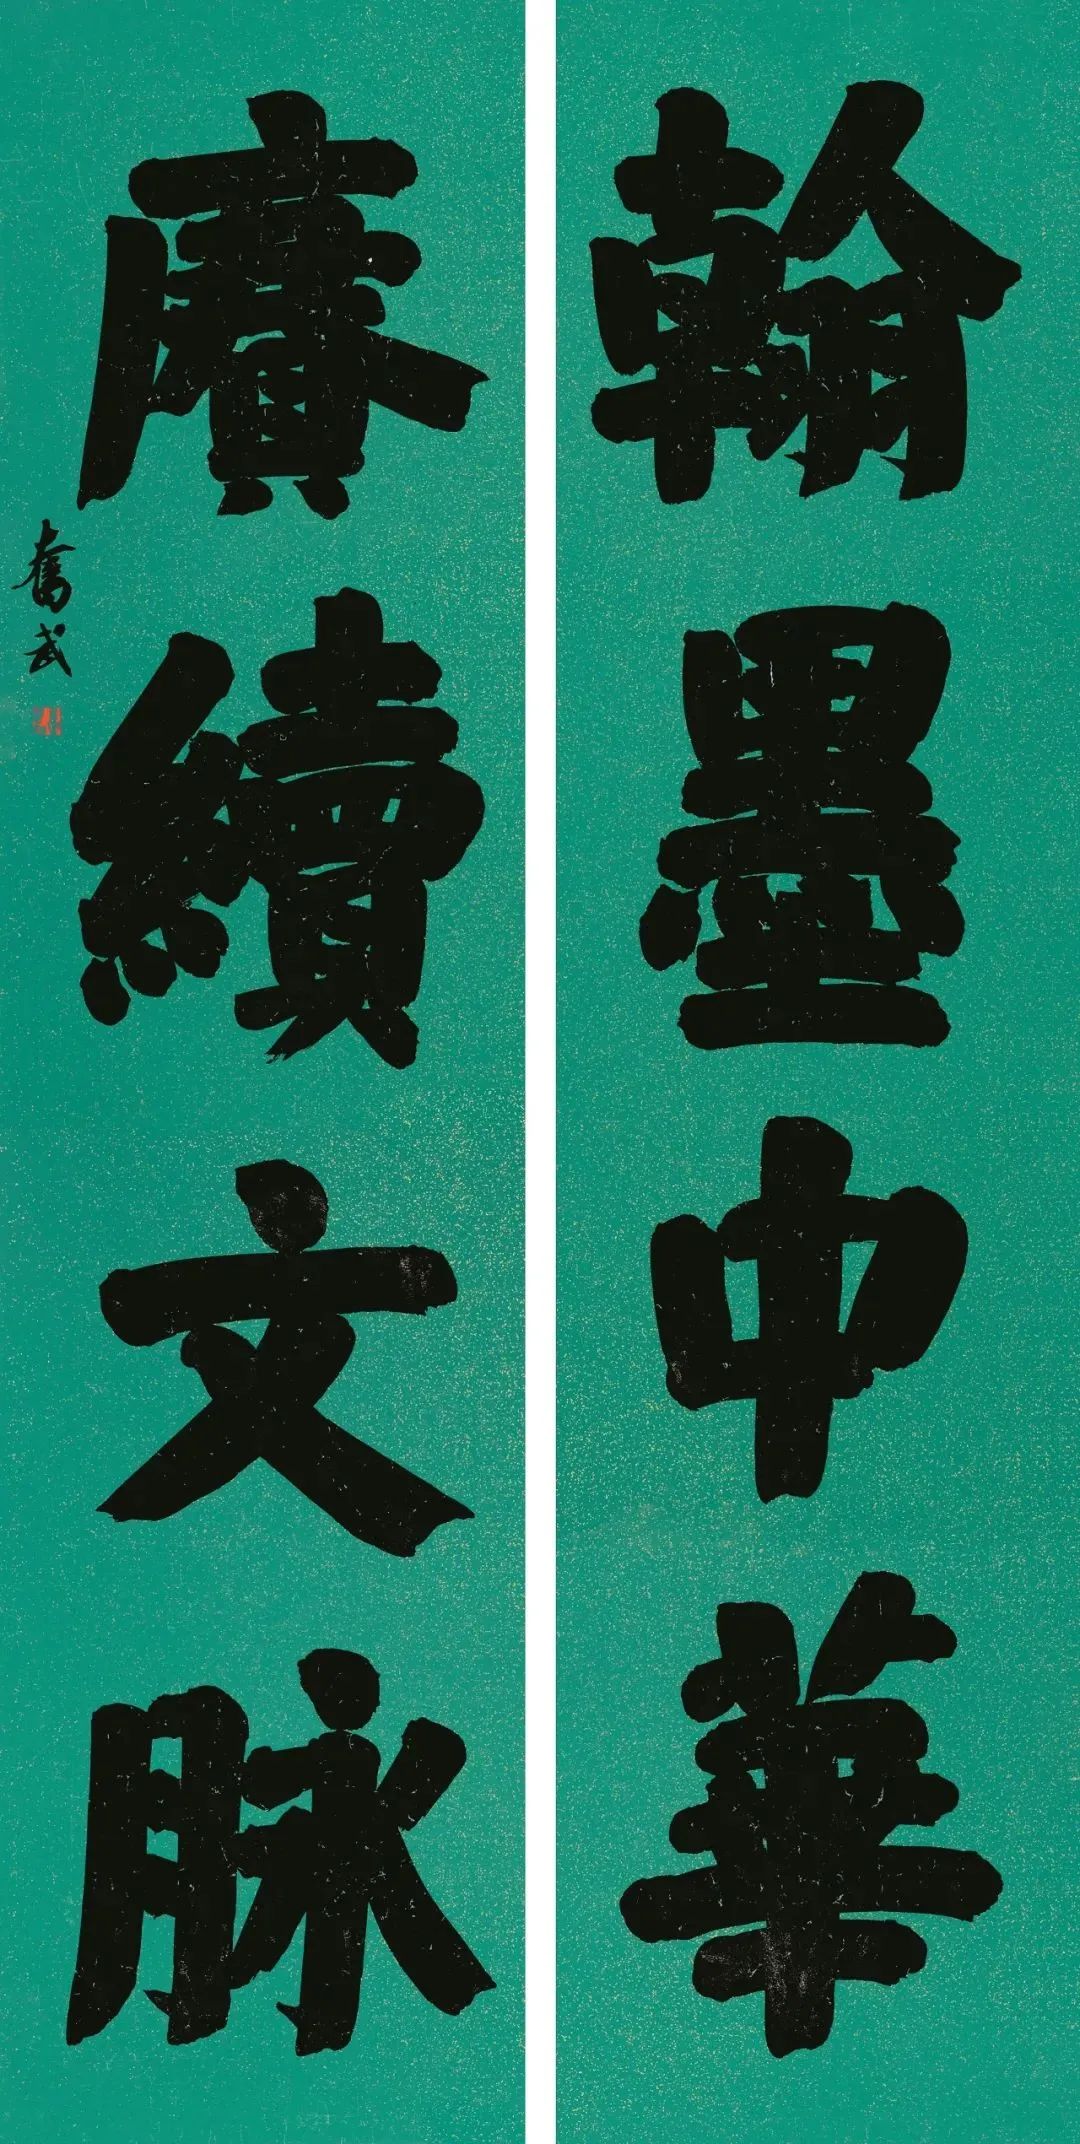 翰墨中華
賡續文脉
奮武